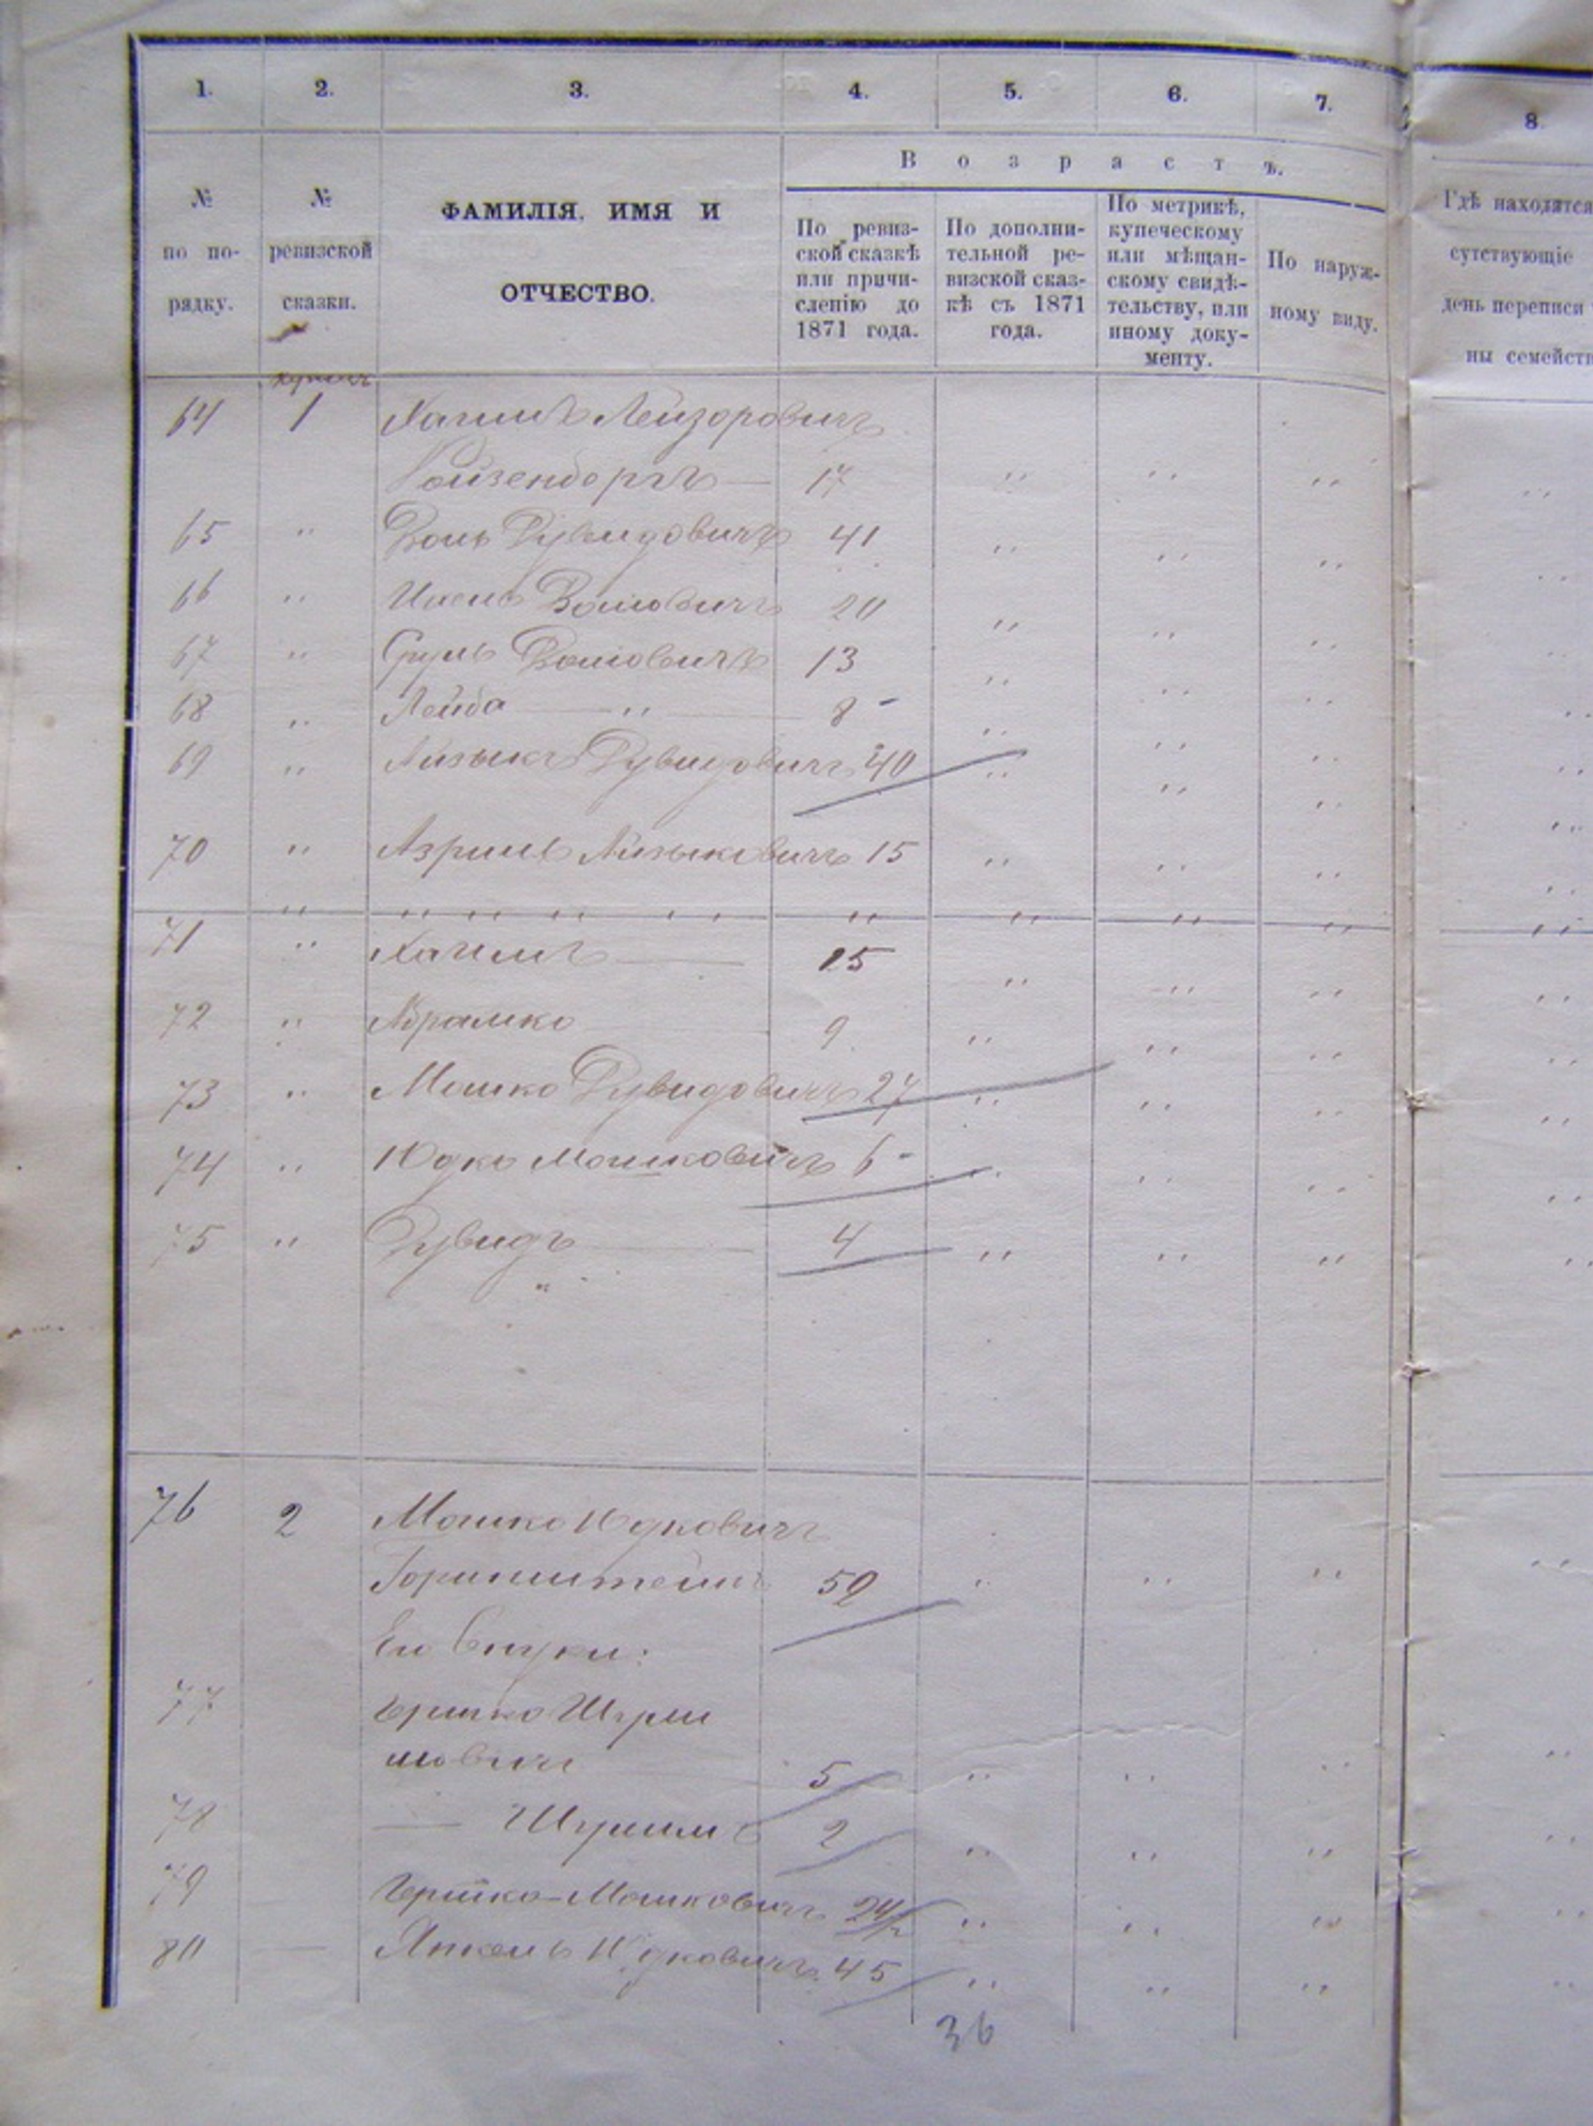 1. 2. 3. 4. 5. 6. 7. 8.
Возрастъ.
№ по по-рядку.
№ ревизской сказки.
ФАМИЛІЯ, ИМЯ И
ОТЧЕСТВО.
По ревиз-
ской сказкѣ
или причи-
сленію до
1871 года.
По дополни-
тельной ре-
визской сказ-
кѣ съ 1871
года.
По метрикѣ,
купеческому
или мѣщан-
скому свидѣ-
тельству, или
иному доку-
менту.
По наруж-
ному виду.
Гдѣ находятся
сутствующіе
день переписи
ны семейств
64 1 Хаимъ Лейзоровичъ
Ройзенбергъ — 17 " " " "
65 " Волъ Рувидовичъ 41 " " "
66 " Волювичъ 20 " " "
67 " Сруль Волювичъ 13 " " "
68 " Лейба — " — 8 - " " "
69 " Айзыкъ Рувидовичъ 40 " " "
70 " Азриль Айзыковичъ 15 " " "
" " " " " " " " " " "
71 " Хаимъ — 15 " " "
72 " Абрамко 9 " " "
73 " Мошко Рувидовичъ 27 " " "
74 " Юдко Мошковичъ 6 - " " "
75 " Рувидъ — 4 " " "
"
76 2 Мошко Юдковичъ
Горинштейнъ 59 " " "
Его внуки:
77 Гершко Шули
мовичъ 5 " " "
78 — Шулимъ 2 " " "
79 Гершко Мошковичъ 24 " " "
80 — Янкель Юдковичъ 45 " " "
36